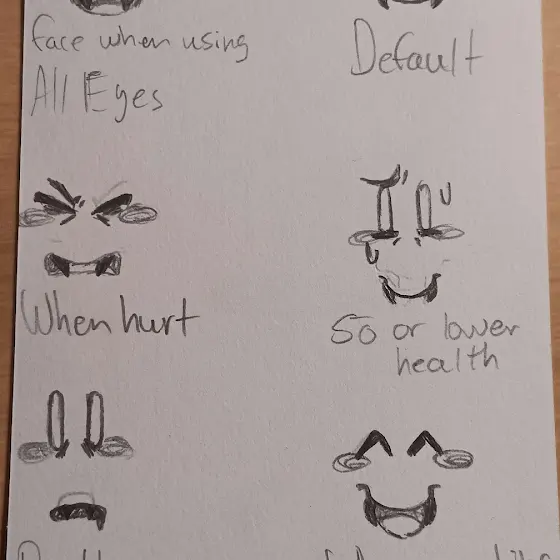 face when using
All Eyes
Default
When hurt
50 or lower
health